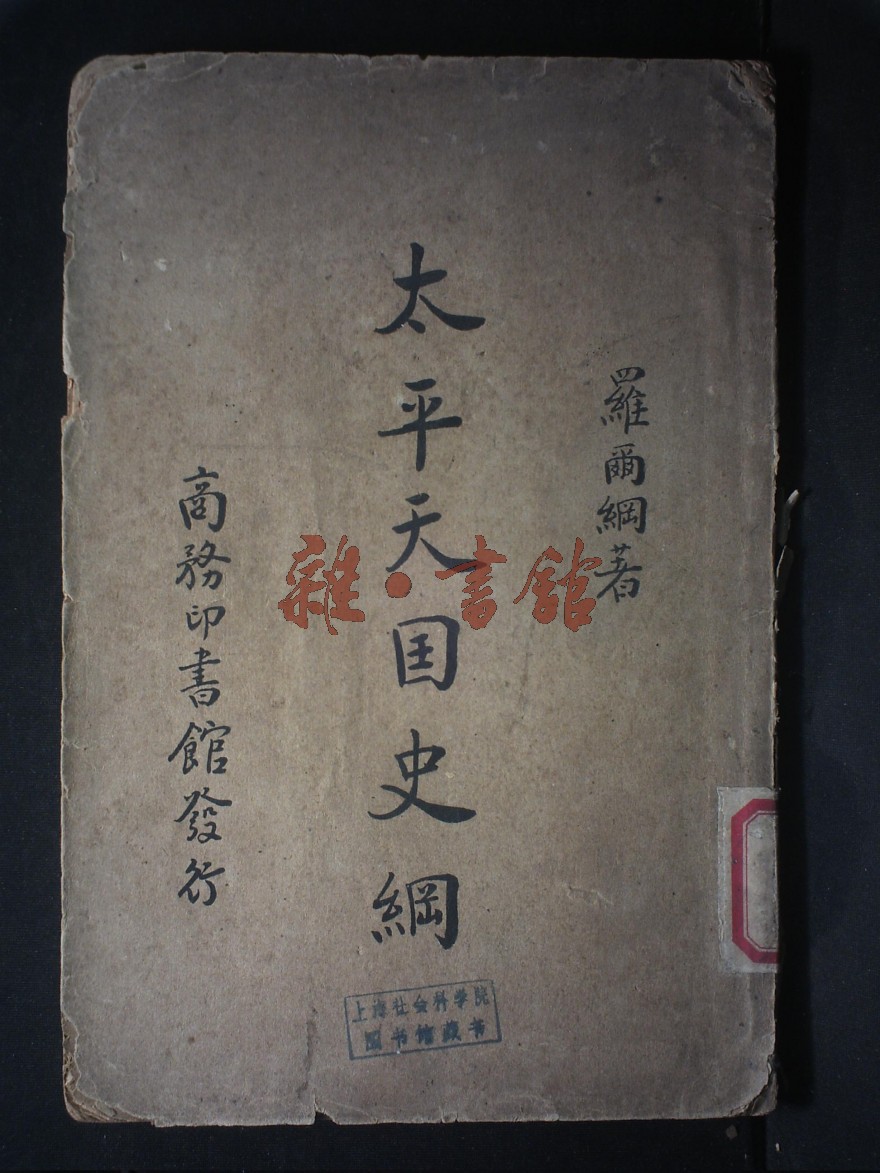 羅爾綱著
太平天囯史綱
商務印書館發行
雜·書館
上海社会科学院
图书馆藏书